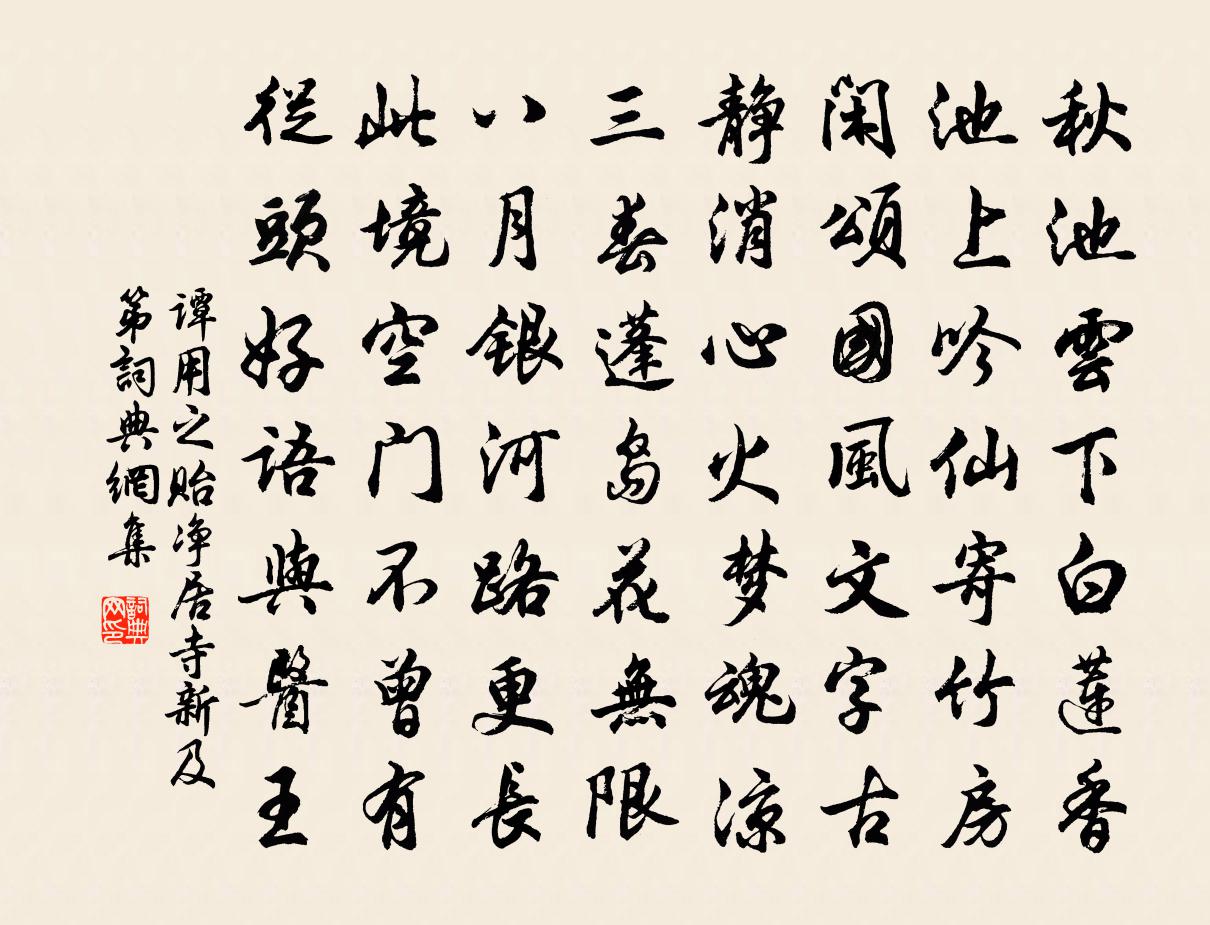 秋池雲下白蓮香
池上吟仙寄竹房
閑頌國風文字古
静消心火梦魂凉
三春蓬島花無限
八月銀河路更長
此境空门不曾有
從頭好語與醫王
谭用之贻净居寺新及
第詞典網集
詞典
网印